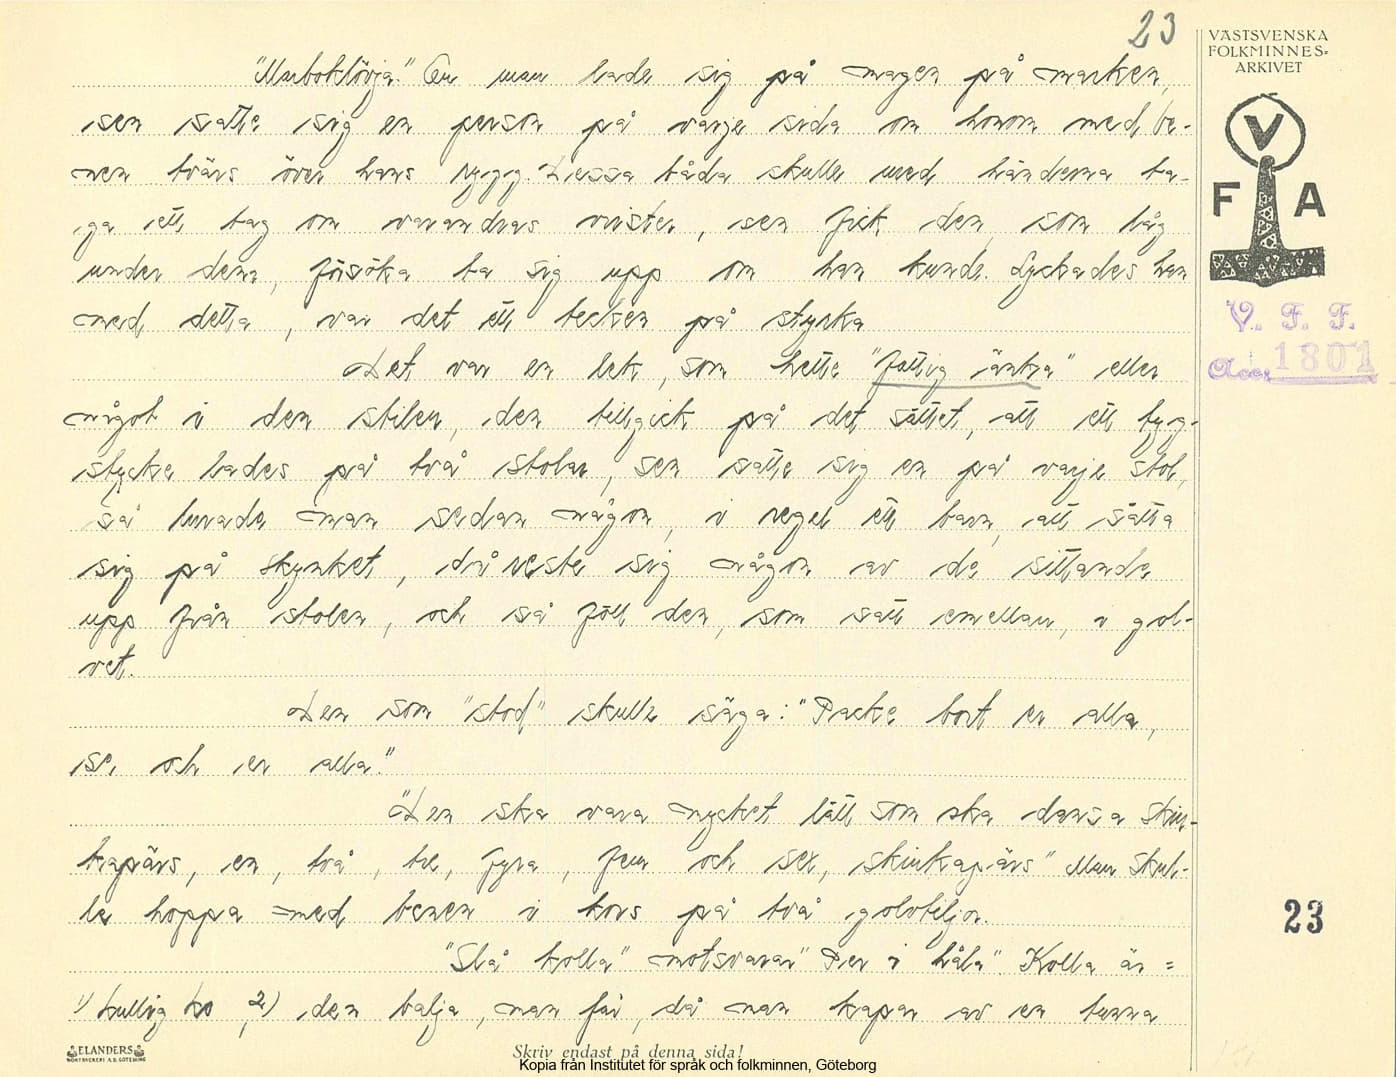 23
VÄSTSVENSKA
FOLKMINNES-
ARKIVET
V
F A
V. F. F.
Acc. 1801
"Murboklövja." En man lade sig på magen på marken,
sen satte sig en person på varje sida om honom med be-
nen tvärs över hans rygg. Dessa båda skulle med händerna ta-
ga ett tag om varandras vrister, sen fick den, som låg
under dem, försöka ta sig upp om han kunde. Lyckades han
med detta, var det ett tecken på styrka
Det var en lek, som hette "fattig änka" eller
något i den stilen, den tillgick på det sättet, att ett tyg-
stycke lades på två stolar, sen satte sig en på varje stol,
så lurade man sedan någon, i regel ett barn, att sätta
sig på skynket, då reste sig någon av de sittande
upp från stolen, och så föll den, som satt emellan, i gol-
vet.
Den som "stod" skulle säga: "Packe bort er alla,
se, och er alla."
"Den ska vara mycket lätt som ska dansa skin-
kapärs, en, två, tre, fyra, fem och sex, skinkapärs" Man skul-
le hoppa med benen i kors på två golvtiljor.
"Slå kolla" motsvarar "Per i håla". Kolla är =
1) kullig ko, 2) den balja, man får, då man kapar av en tunna
23
ELANDERS
BOKTRYCKERI A.B. GÖTEBORG
Skriv endast på denna sida!
Kopia från Institutet för språk och folkminnen, Göteborg